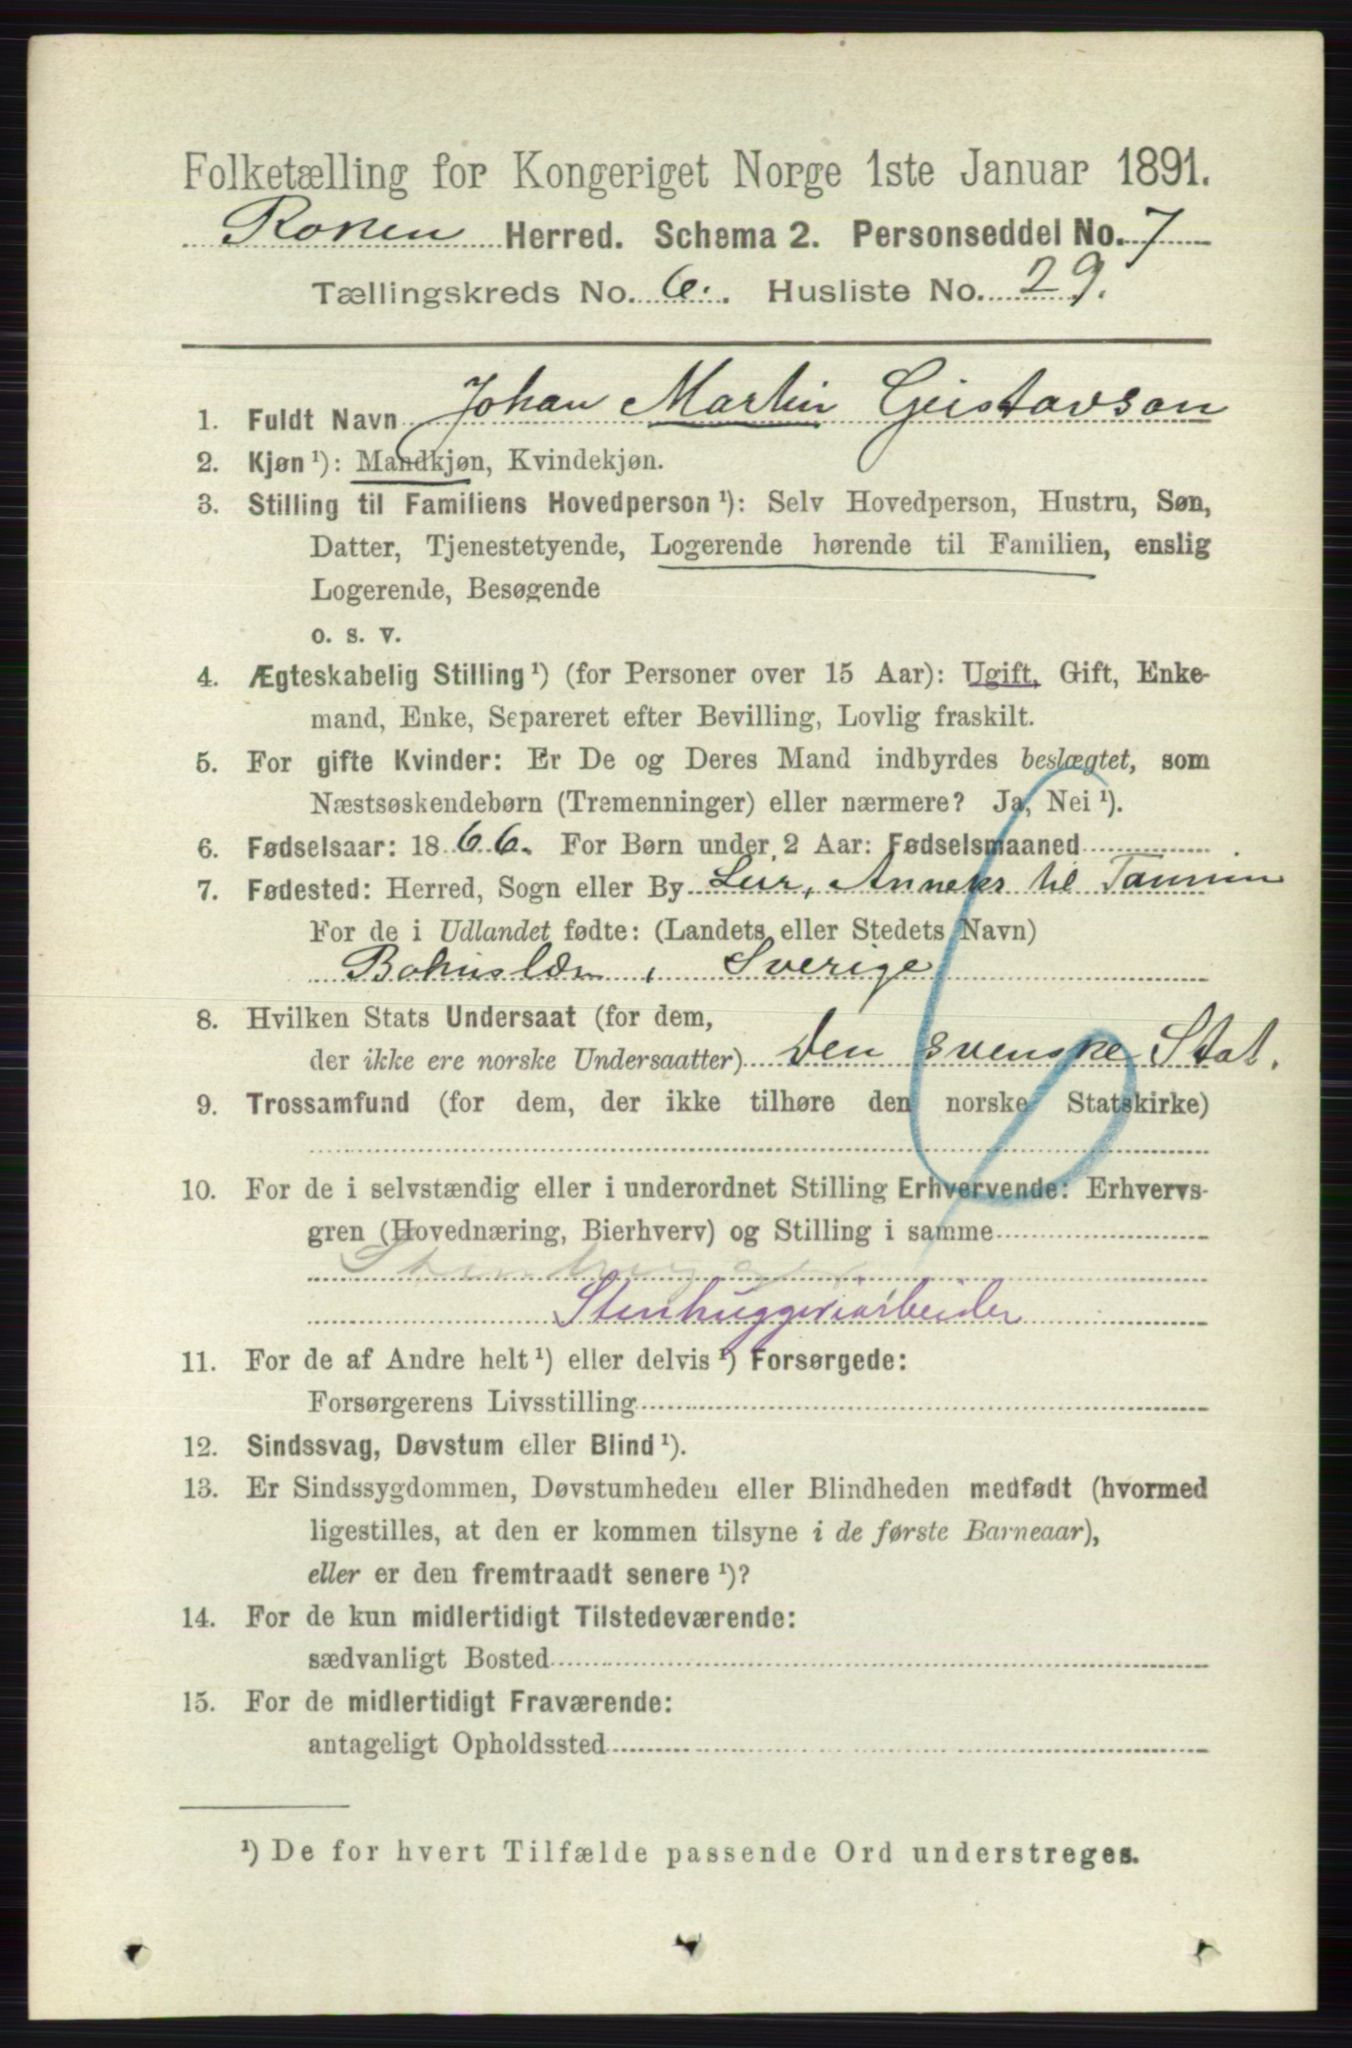 Folketælling for Kongeriget Norge 1ste Januar 1891.
Roken Herred. Schema 2. Personseddel No. 7
Tællingskreds No. 6. Husliste No. 29.
1. Fuldt Navn Johan Martin Gustavson
2. Kjøn ¹): Mandkjøn, Kvindekjøn.
3. Stilling til Familiens Hovedperson ¹): Selv Hovedperson, Hustru, Søn,
Datter, Tjenestetyende, Logerende hørende til Familien, enslig
Logerende, Besøgende
o. s. v.
4. Ægteskabelig Stilling ¹) (for Personer over 15 Aar): Ugift, Gift, Enke-
mand, Enke, Separeret efter Bevilling, Lovlig fraskilt.
5. For gifte Kvinder: Er De og Deres Mand indbyrdes beslægtet, som
Næstsøskendebørn (Tremenninger) eller nærmere? Ja, Nei ¹).
6. Fødselsaar: 1866. For Børn under 2 Aar: Fødselsmaaned
7. Fødested: Herred, Sogn eller By Lur, Annex til Tanum
For de i Udlandet fødte: (Landets eller Stedets Navn)
Bohuslän, Sverige
8. Hvilken Stats Undersaat (for dem,
der ikke ere norske Undersaatter) Den svenske Stat.
9. Trossamfund (for dem, der ikke tilhøre den norske Statskirke)
10. For de i selvstændig eller i underordnet Stilling Erhvervende: Erhvervs-
gren (Hovednæring, Bierhverv) og Stilling i samme
Stenhugger
Stenhuggeriarbeider
11. For de af Andre helt ¹) eller delvis ¹) Forsørgede:
Forsørgerens Livsstilling
12. Sindssvag, Døvstum eller Blind ¹).
13. Er Sindssygdommen, Døvstumheden eller Blindheden medfødt (hvormed
ligestilles, at den er kommen tilsyne i de første Barneaar),
eller er den fremtraadt senere ¹)?
14. For de kun midlertidigt Tilstedeværende:
sædvanligt Bosted
15. For de midlertidigt Fraværende:
antageligt Opholdssted
¹) De for hvert Tilfælde passende Ord understreges.